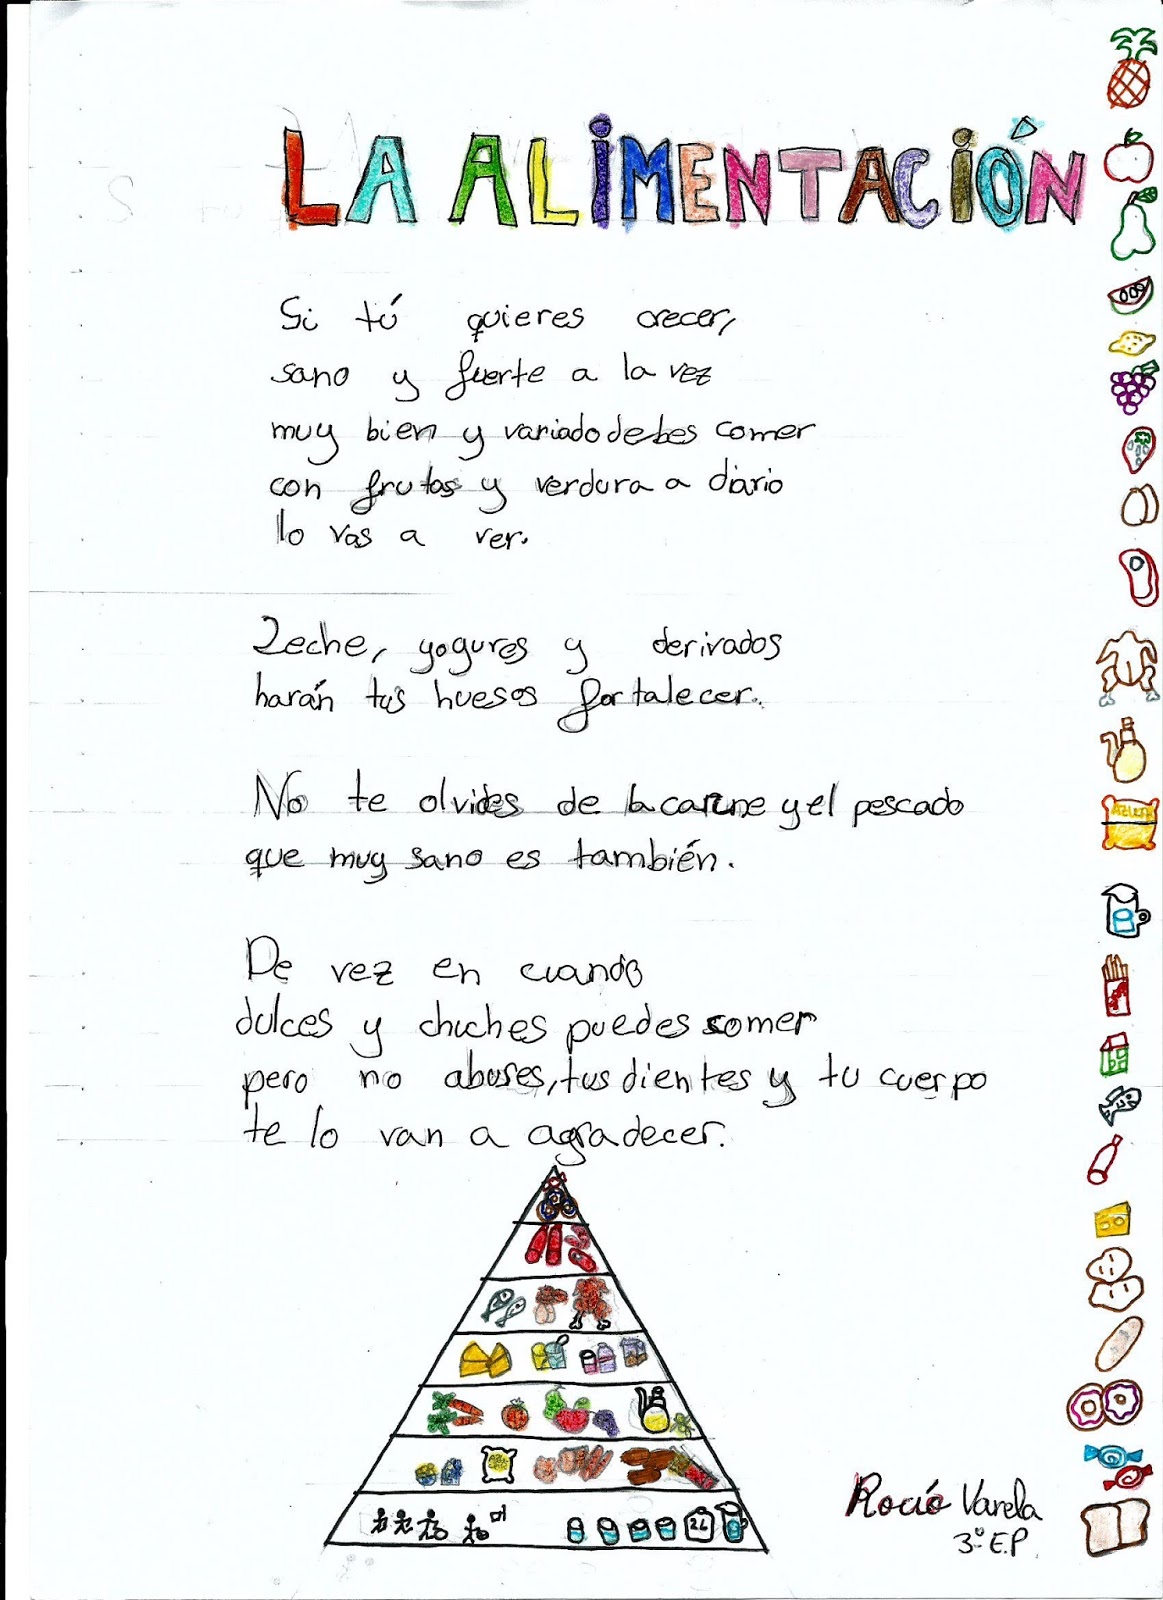 LA ALIMENTACIÓN
Si tú quieres crecer,
sano y fuerte a la vez
muy bien y variado debes comer
con frutas y verdura a diario
lo vas a ver.
Leche, yogures y derivados
harán tus huesos fortalecer.
No te olvides de la carne y el pescado
que muy sano es también.
De vez en cuando
dulces y chuches puedes comer
pero no abuses, tus dientes y tu cuerpo
te lo van a agradecer.
2L
Roció Varela
3º E.P.